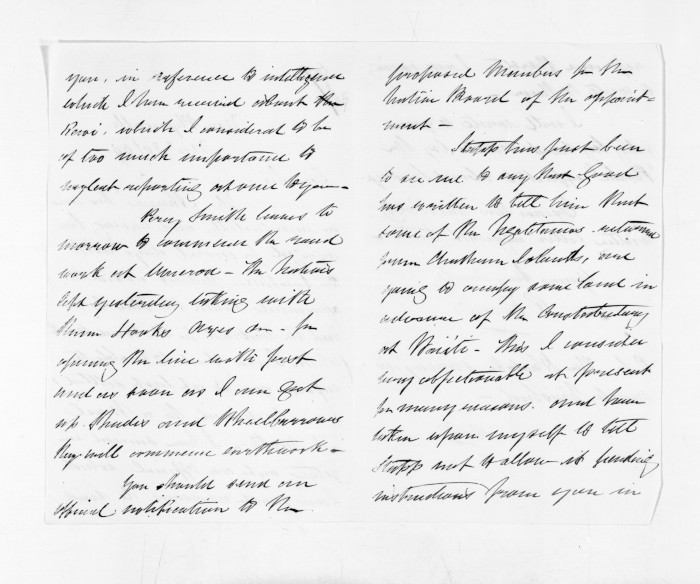 you, in reference to intelligence
which I have received about the
Rewi, which I considered to be
of too much importance to
neglect reporting at once to you—
Percy Smith leaves to
morrow to commence the road
work at Umeroa— The Natives
left yesterday taking with
them Hooks Axes &c— for
opening the line with first
and as soon as I can get
up Spades and Wheelbarrows
they will commence earthwork—
You should send an
official notification to the
proposed Members for the
Native Board of the appoint-
ment—
Stapp has just been
to see me to say that Good
has written to tell him that
some of the Ngatitamas returned
from Chatham Islands, are
going to occupy some land in
advance of the Constabulary
at Waiiti— This I consider
very objectionable at present
for many reasons. and have
taken upon myself to tell
Stapp not to allow it pending
instructions from you in